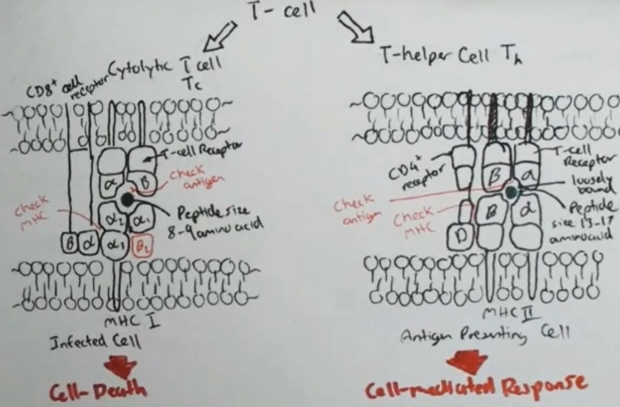 T-cell
Cytolytic T cell
Tc
CD8+ cell
receptor
T-cell Receptor
α
β
check
antigen
check
MHC
α2
α1
Peptide size
8-9 amino acid
β
α
α3
β2
MHC I
Infected Cell
Cell-Death
T-helper Cell Th
CD4+
receptor
T-cell
Receptor
β
α
loosely
bound
check
antigen
check
MHC
Peptide
size 13-17
aminoacid
β
α
D
MHC II
Antigen Presenting Cell
Cell-mediated Response